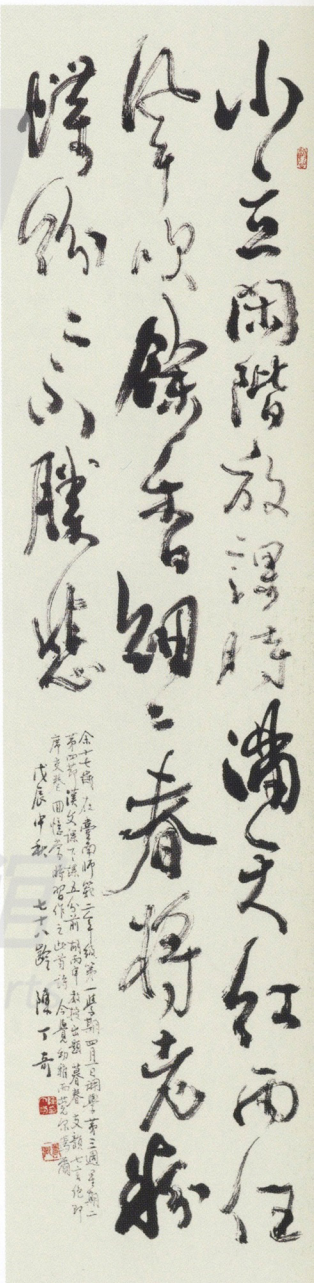 小立閑階放課時滿天紅雨任
風吹餘香細〻春將老粉
蝶紛〻不勝悲
余十七歲在臺南師範二年級第一學期四月一日開學第三週星期二
第四節漢文課下課五分前胡丙申教授出題暮春支韻七言絕即
席交卷回憶當時習作之此首詩今覺幼稚而莞爾
戊辰中秋 七十八齡 陳丁奇